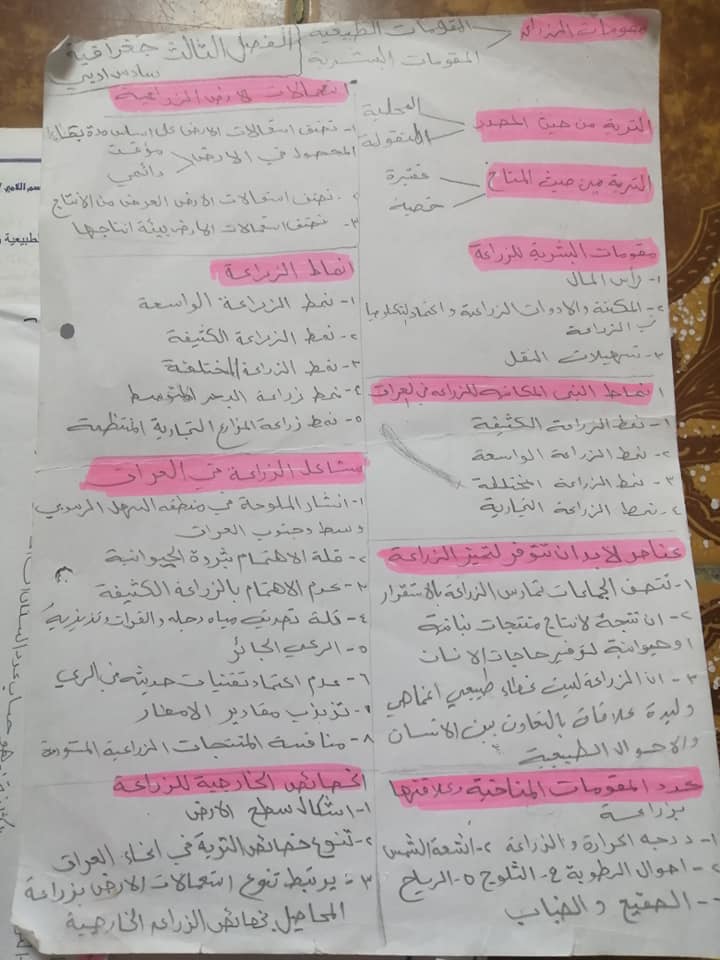 الفصل الثالث جغرافية
سادس ادبي
مقومات الزراعة
المقومات الطبيعية
المقومات البشرية
التربة من حيث المصدر
المحلية
المنقولة
التربة من حيث المناخ
فقيرة
خصبة
مقومات البشرية للزراعة
١- رأس المال
٢- المكننة والادوات الزراعية و اعتماد التكلوجيا
في الزراعة
٣- تسهيلات النقل
انماط النبى المكانه للزراعة في العراق
١- نمط الزراعة الكثيفة
٢- نمط الزراعة الواسعة
٣- نمط الزراعة المختلطة
٤- نمط الزراعة التجارية
عناصر لابد ان تتوفر لتميز الزراعة
١- تتصف الجماعات تمارس الزراعة بالاستقرار
٢- ان تتجة لانتاج منتجات نباتية
او حيوانية لتوفير حاجات الانسان
٣- ان الزراعة ليست غطاء طبيعي انماهي
وليدة علاقة بالتعاون بين الانسان
والاحوال الطبيعية
عدد المقومات المناخية وعلاقتها
بزراعة
١- درجه الحرارة و الزراعة ٢- اشعة الشمس
٣- احوال الرطوبة ٤- الثلوج ٥- الرياح
٦- الصقيع و الضباب
استعمالات الارض الزراعية
١- تصنف استعمالات الارض على اساس مدة بقاء
المحصول في الارض
مؤقت
دائمي
٢- تصنف استعمالات الارض الغرض من الانتاج
٣- تصنف استمالات الارض بيئة انتاجها
انماط الزراعة
١- نمط الزراعة الواسعة
٢- نمط الزراعة الكثيفة
٣- نمط الزراعة المختلطة
٤- نمط زراعة البحر المتوسط
٥- نمط زراعة المزارع التجارية المنتظمة
مشاكل الزراعة في العراق
١- انشار الملوحة في منطقه السهل الرسوبي
وسط وجنوب العراق
٢- قلة الاهتمام بثروة الحيوانية
٣- عدم الاهتمام بالزراعة الكثيفة
٤- قلة تصريف مياه دجله والفرات وتذبذبه
٥- الرعي الجائر
٦- عدم اعتماد تقنيات حديثه في الري
٧- تذبذب مقادير الامطار
٨- منافسة المنتجات الزراعية المستوردة
الخصائص الخارجية للزراعة
١- اشكال سطح الارض
٢- تنوع خصائص التربة في انحاء العراق
٣- يرتبط تنوع استعمالات الارض بزراعة
المحاصيل بخصائص الزراعه الخارجية